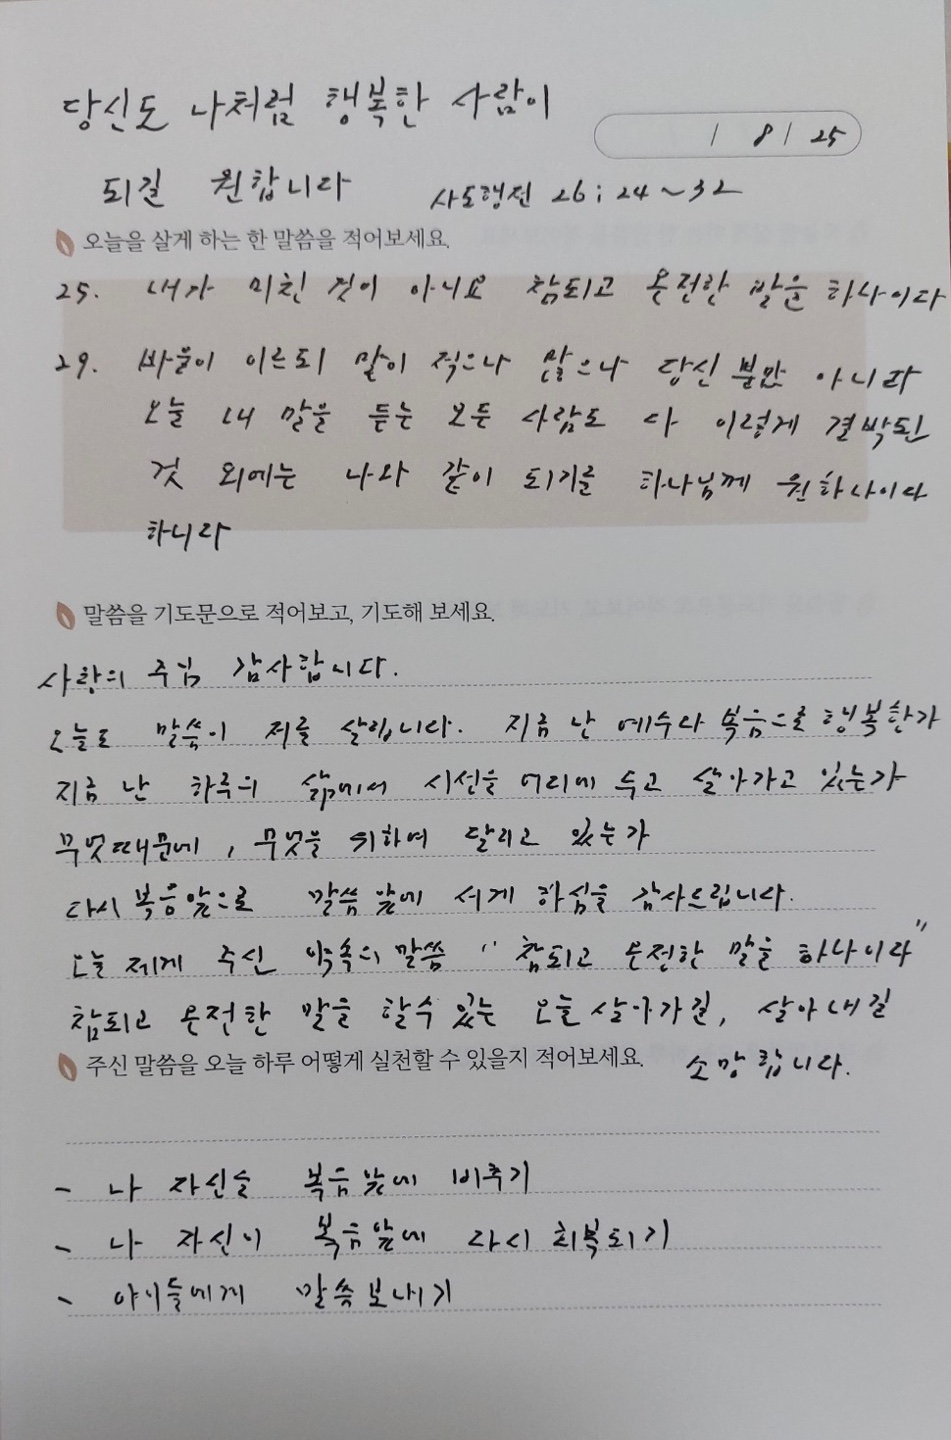 당신도 나처럼 행복한 사람이
/ 8 / 25
되길 원합니다 사도행전 26:24~32
오늘을 살게 하는 한 말씀을 적어보세요.
25. 내가 미친 것이 아니요 참되고 온전한 말을 하나이다
29. 바울이 이르되 말이 적으나 많으나 당신 뿐만 아니라
오늘 내 말을 듣는 모든 사람도 다 이렇게 결박된
것 외에는 나와 같이 되기를 하나님께 원하나이다
하니라
말씀을 기도문으로 적어보고, 기도해 보세요.
사랑의 주님 감사합니다.
오늘도 말씀이 저를 살립니다. 지금 난 예수다 복음으로 행복한가
지금 난 하루의 삶에서 시선을 어디에 두고 살아가고 있는가
무엇때문에, 무엇을 위하여 달리고 있는가
다시 복음앞으로 말씀앞에 서게 하심을 감사드립니다.
오늘 제게 주신 약속의 말씀 "참되고 온전한 말을 하나이다"
참되고 온전한 말을 할수 있는 오늘 살아가길, 살아내길
주신 말씀을 오늘 하루 어떻게 실천할 수 있을지 적어보세요. 소망합니다.
- 나 자신을 복음앞에 비추기
- 나 자신이 복음앞에 다시 회복되기
- 아이들에게 말씀보내기